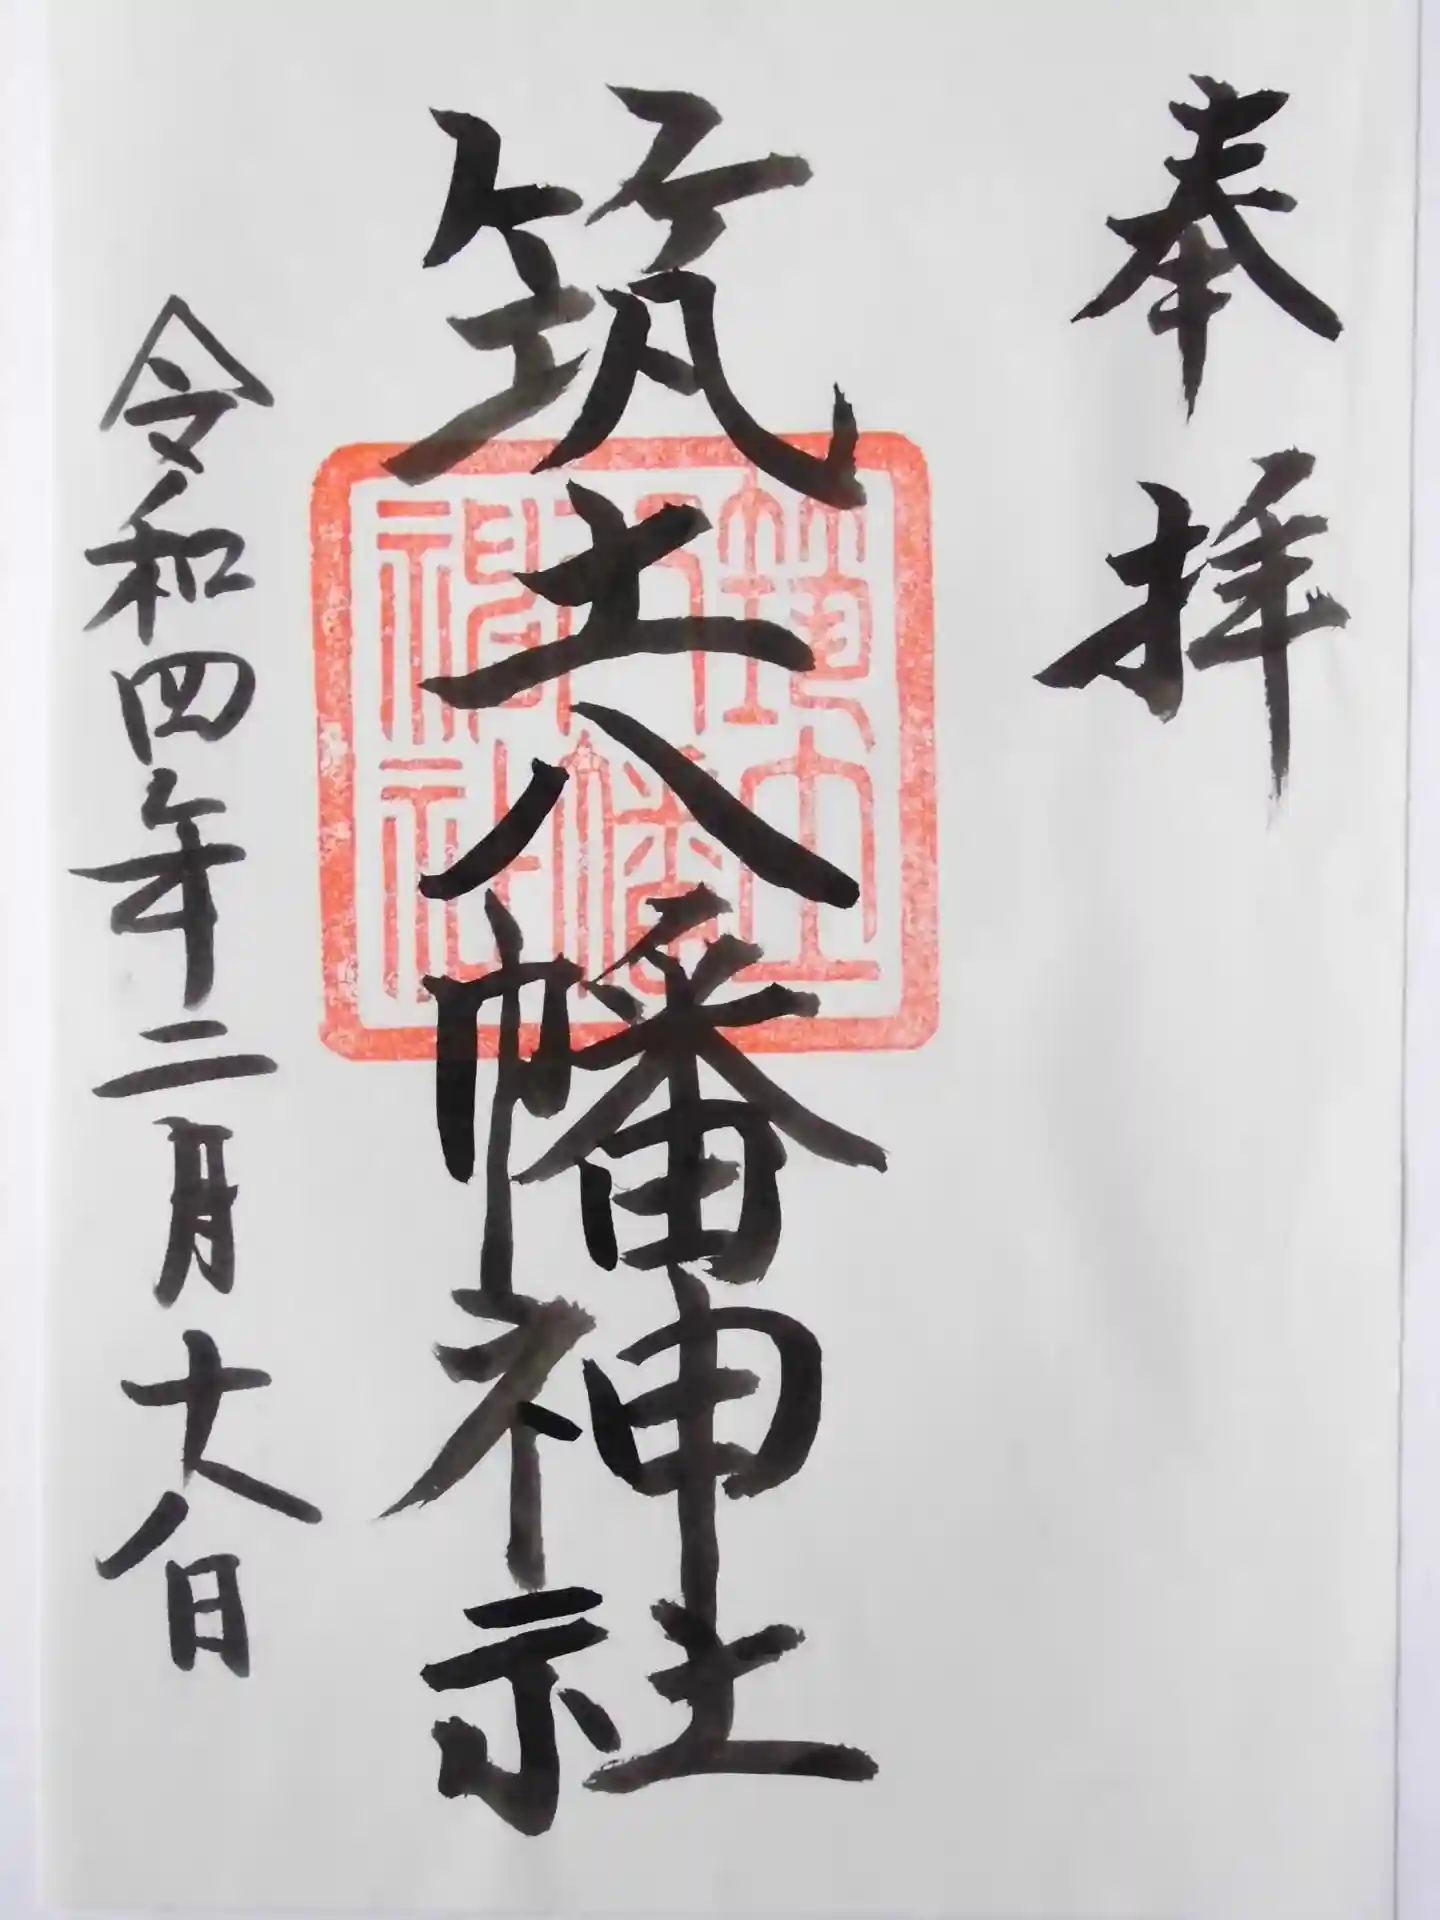 奉拝
筑土八幡神社
筑土
八幡
神社
令和四年二月十八日